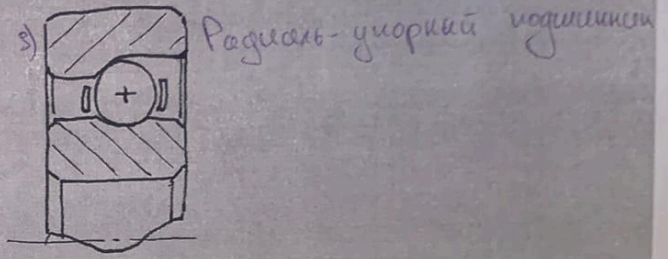 3) Радиаль-упорный подшипник